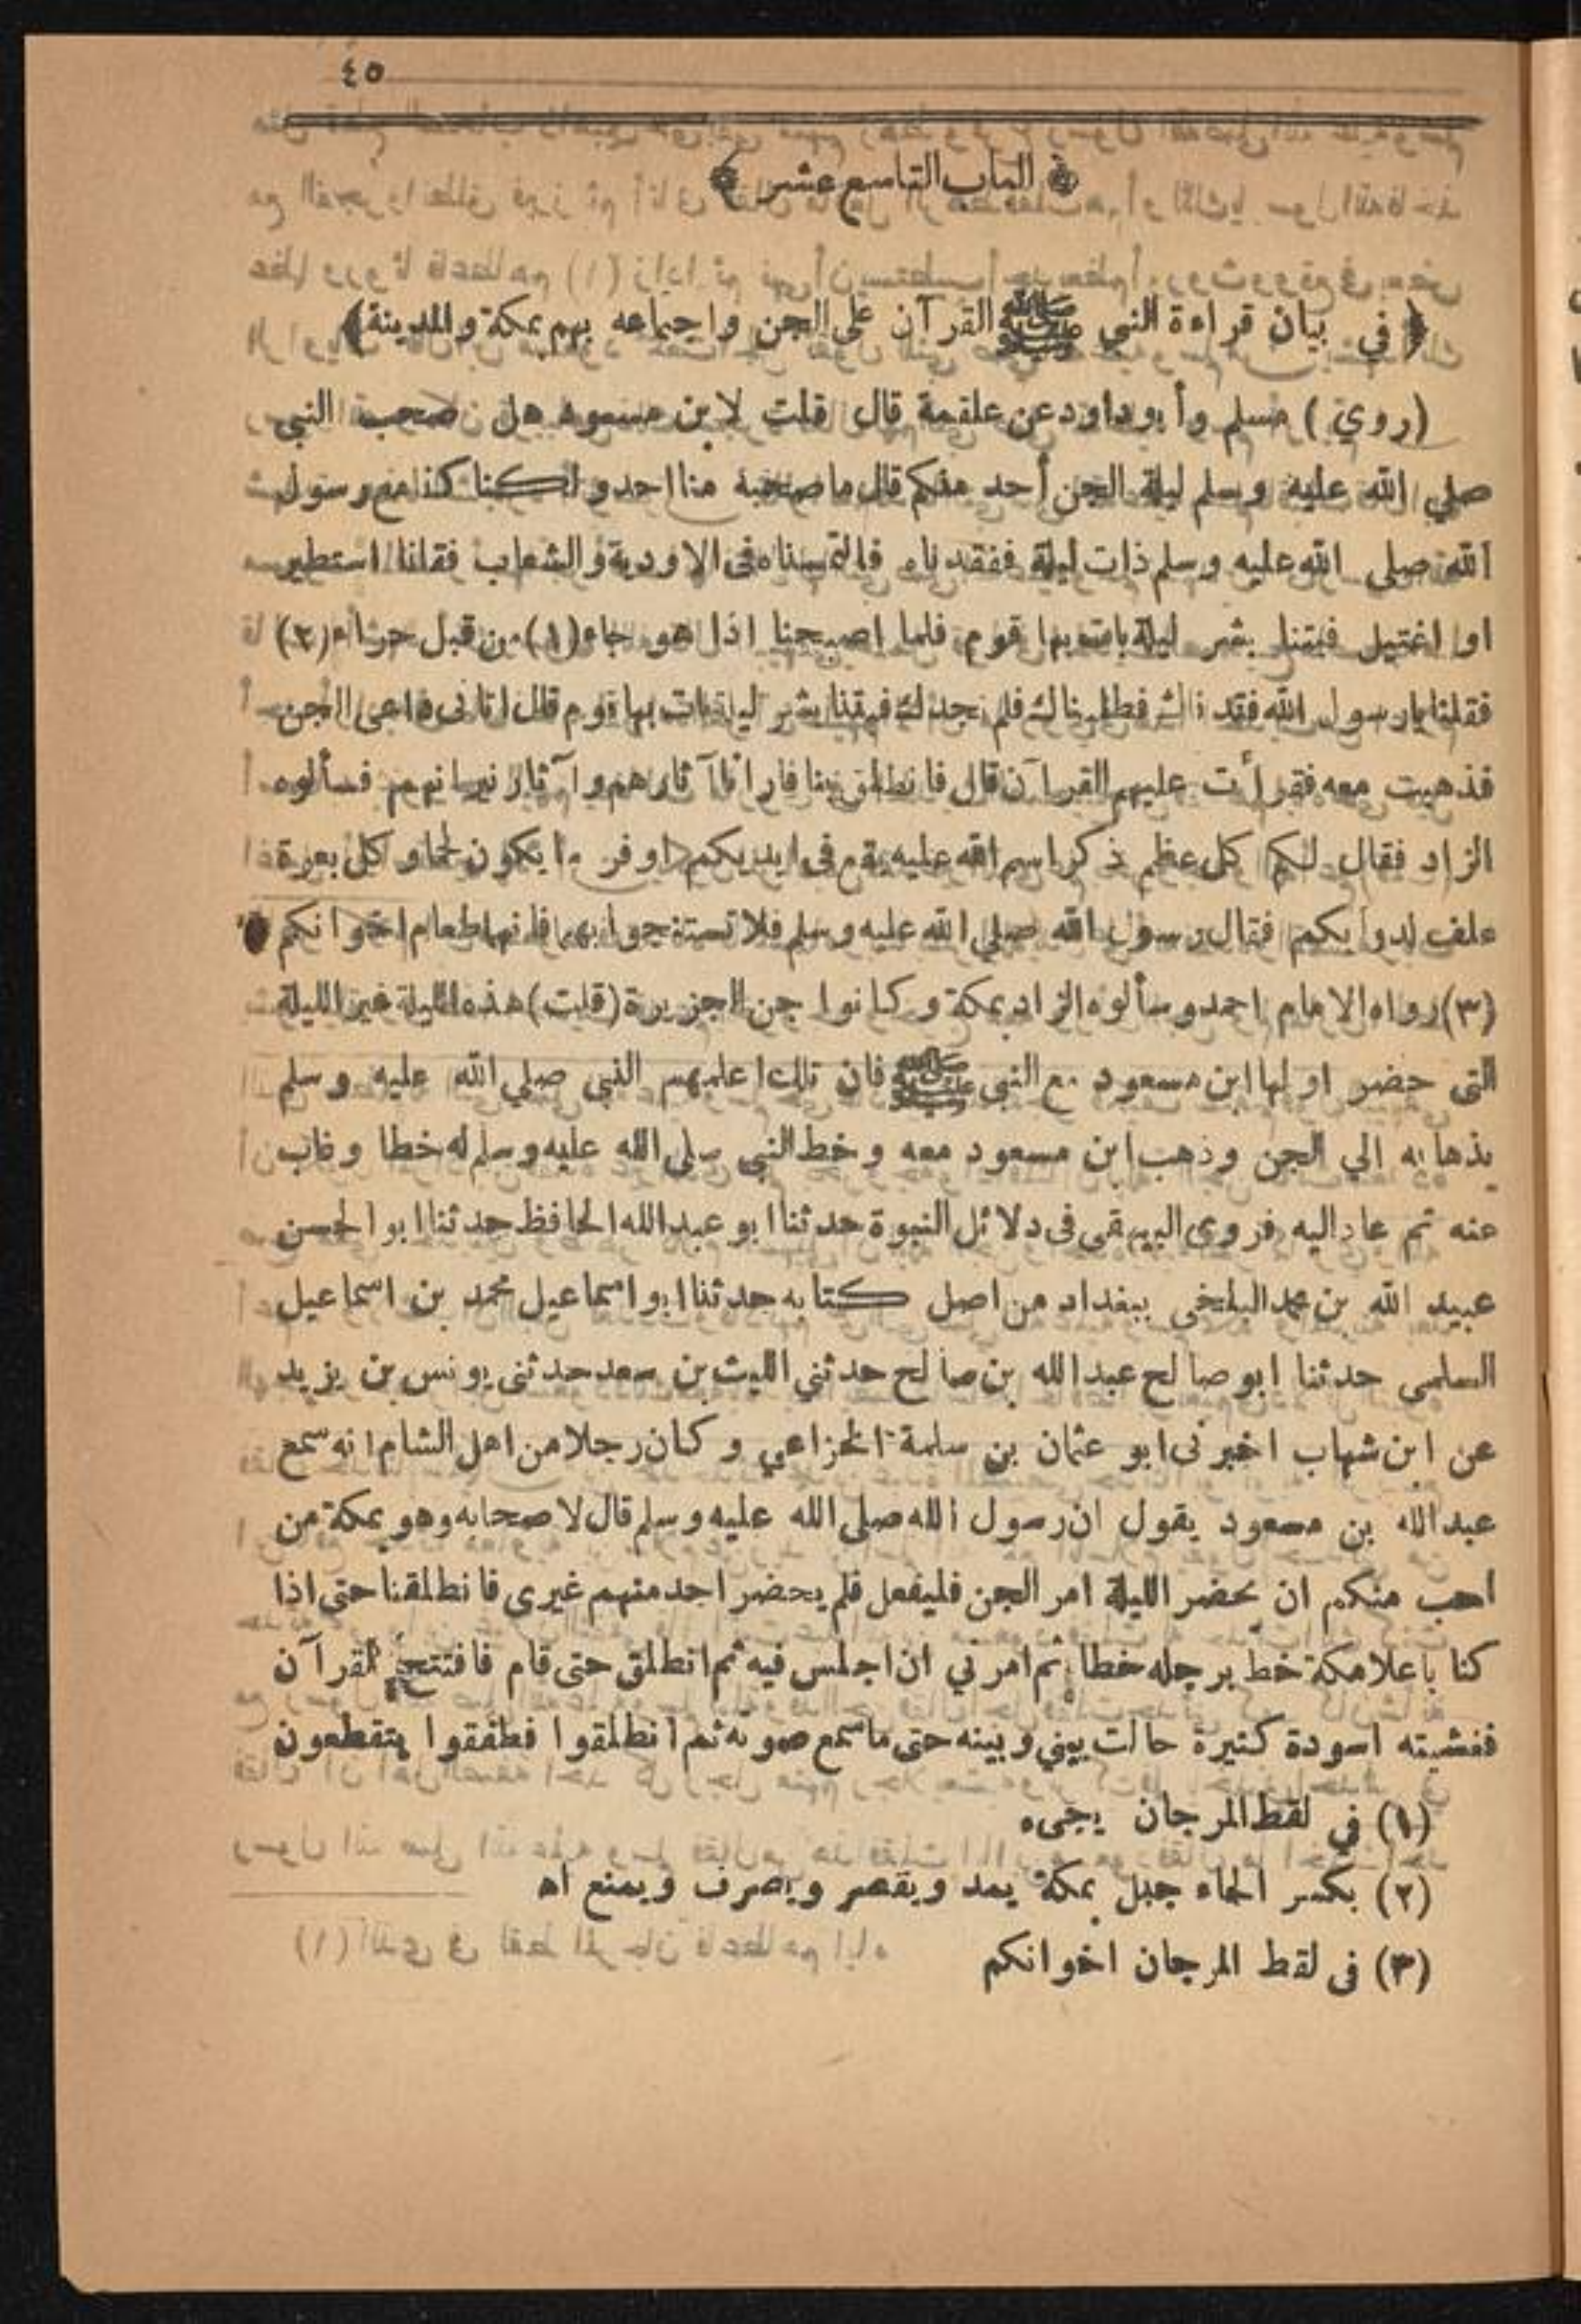 ٤٥
﴿ الباب التاسع عشر ﴾
﴿ في بيان قراءة النبي ﷺ القرآن على الجن واجتماعه بهم بمكة والمدينة ﴾
(روي) مسلم وأبو داود عن علقمة قال قلت لابن مسعود هل صحب النبي
صلي الله عليه وسلم ليلة الجن أحد منكم قال ما صحبه منا احد ولكنا كنا مع رسول
الله صلى الله عليه وسلم ذات ليلة ففقدناه فالتمسناه فى الاودية والشعاب فقلنا استطير
او اغتيل فبتنا بشر ليلة بات بها قوم فلما اصبحنا اذا هو جاء (١) من قبل حراء (٢)
فقلنا يا رسول الله فقدناك فطلبناك فلم نجدك فبتنا بشر ليلة بات بها قوم قال اتانى داعى الجن
فذهبت معه فقرأت عليهم القرآن قال فانطلق بنا فارانا آثارهم وآثار نيرانهم فسألوه
الزاد فقال لكم كل عظم ذكر اسم الله عليه يقع فى ايديكم اوفر ما يكون لحما وكل بعرة
علف لدوابكم فقال رسول الله صلي الله عليه وسلم فلا تستنجوا بهما فانهما طعام اخوانكم
(٣) رواه الامام احمد وسألوه الزاد بمكة وكانوا جن الجزيرة (قلت) هذه الليلة غير الليلة
التى حضر اولها ابن مسعود مع النبى ﷺ فان تلك اعلمهم النبي صلي الله عليه وسلم
بذهابه الي الجن وذهب ابن مسعود معه وخط النبي صلى الله عليه وسلم له خطا وغاب
عنه ثم عاد اليه فروى البيهقى فى دلائل النبوة حدثنا ابو عبد الله الحافظ حدثنا ابو الحسن
عبيد الله بن محمد البلخى ببغداد من اصل كتابه حدثنا ابو اسماعيل محمد بن اسماعيل
السلمى حدثنا ابو صالح عبد الله بن صالح حدثني الليث بن سعد حدثنى يونس بن يزيد
عن ابن شهاب اخبرنى ابو عثمان بن سلمة الخزاعي وكان رجلا من اهل الشام انه سمع
عبد الله بن مسعود يقول ان رسول الله صلى الله عليه وسلم قال لاصحابه وهو بمكة من
احب منكم ان يحضر الليلة امر الجن فليفعل فلم يحضر احد منهم غيرى فانطلقنا حتى اذا
كنا باعلا مكة خط برجله خطا ثم امرني ان اجلس فيه ثم انطلق حتى قام فافتتح القرآن
فغشيته اسودة كثيرة حالت بيني وبينه حتى ما سمع صوته ثم انطلقوا فطفقوا يتقطعون
(١) في لقط المرجان يجىء
(٢) بكسر الحاء جبل بمكة يمد ويقصر ويصرف ويمنع اه
(٣) فى لقط المرجان اخوانكم